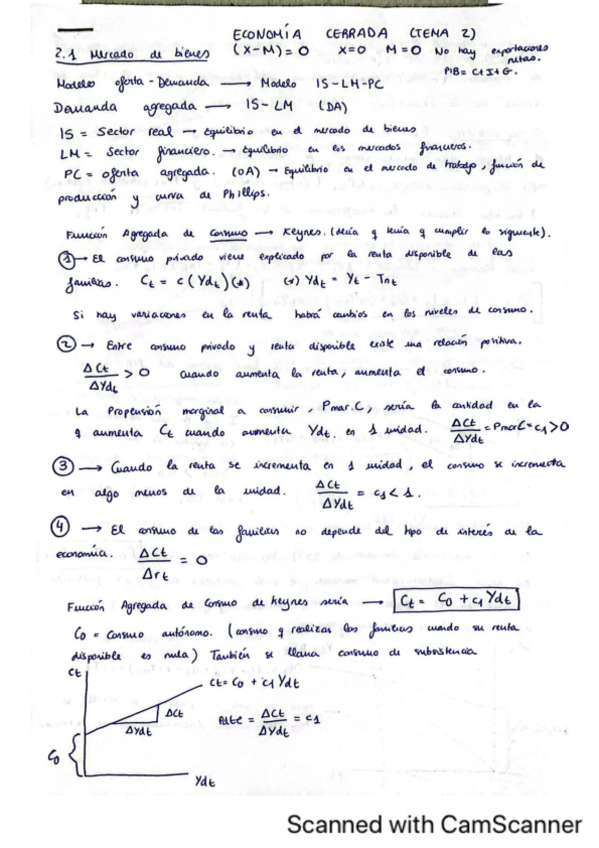 ECONOMÍA CERRADA (TEMA 2)
2.1 Mercado de bienes (X-M)=0 X=0 M=0 No hay exportaciones netas.
PIB= C+I+G.
Modelo oferta-Demanda → Modelo IS-LM-PC
Demanda agregada → IS-LM (DA)
IS = Sector real → Equilibrio en el mercado de bienes
LM = Sector financiero. → Equilibrio en los mercados financieros.
PC = oferta agregada. (OA) → Equilibrio en el mercado de trabajo, función de
producción y curva de Phillips.
Función Agregada de Consumo → Keynes. (decía q tenía q cumplir lo siguiente).
① → El consumo privado viene explicado por la renta disponible de las
familias. Ct = c (Ydt)(*) (*) Ydt = Yt - Tnt
Si hay variaciones en la renta habrá cambios en los niveles de consumo.
② → Entre consumo privado y renta disponible existe una relación positiva.
ΔCt/ΔYdt > 0 Cuando aumenta la renta, aumenta el consumo.
La Propensión marginal a consumir, Pmar.C, sería la cantidad en la
q aumenta Ct cuando aumenta Ydt en 1 unidad. ΔCt/ΔYdt = PmarC = c1 > 0
③ → Cuando la renta se incrementa en 1 unidad, el consumo se incrementa
en algo menos de la unidad. ΔCt/ΔYdt = c1 < 1.
④ → El consumo de las familias no depende del tipo de interés de la
economía. ΔCt/Δrt = 0
Función Agregada de Consumo de Keynes sería → Ct = C0 + c1 Ydt
C0 = Consumo autónomo. (consumo q realizan las familias cuando su renta
disponible es nula) También se llama consumo de subsistencia
Ct
Ct = C0 + c1 Ydt
ΔCt
ΔYdt
Pdte = ΔCt/ΔYdt = c1
C0
Ydt
Scanned with CamScanner